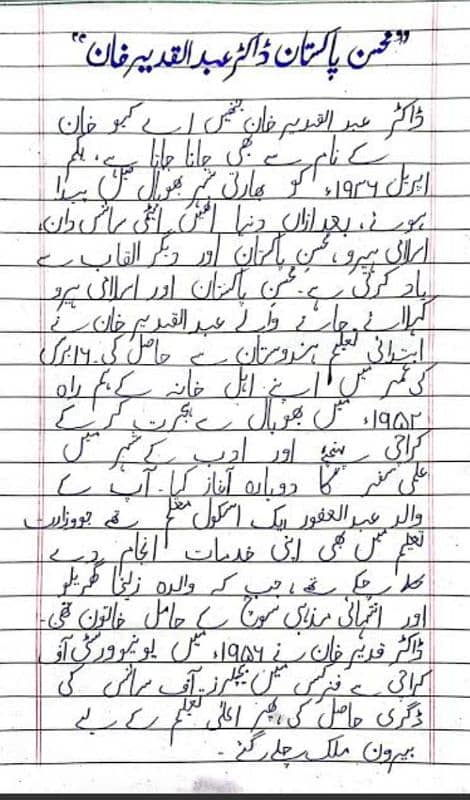 "محسن پاکستان ڈاکٹر عبدالقدیر خان"
ڈاکٹر عبدالقدیر خان جنہیں اے کیو خان
کے نام سے بھی جانا جاتا ہے، یکم
اپریل ۱۹۳۶ء کو بھارتی شہر بھوپال میں پیدا
ہوئے، بعد ازاں دنیا انھیں ایٹمی سائنس دان،
اسلامی ہیرو، محسن پاکستان اور دیگر القاب سے
یاد کرتی ہے۔ محسن پاکستان اور اسلامی ہیرو
کہلائے جانے والے عبدالقدیر خان نے
ابتدائی تعلیم ہندوستان سے حاصل کی۔ ۱۶ برس
کی عمر میں اپنے اہل خانہ کے ہم راہ
۱۹۵۲ء میں بھوپال سے ہجرت کر کے
کراچی پہنچے اور ادب کے شہر میں
علمی سفر کا دوبارہ آغاز کیا۔ آپ کے
والد عبدالغفور ایک اسکول معلم تھے جو وزارت
تعلیم میں بھی اپنی خدمات انجام دے
چکے تھے، جب کہ والدہ زلیخا گھریلو
اور انتہائی مذہبی سوچ کے حامل خاتون تھی۔
ڈاکٹر قدیر خان نے ۱۹۵۶ء میں یونیورسٹی آف
کراچی سے فزکس میں بیچلرز آف سائنس کی
ڈگری حاصل کی، پھر اعلیٰ تعلیم کے لیے
بیرون ملک چلے گئے۔